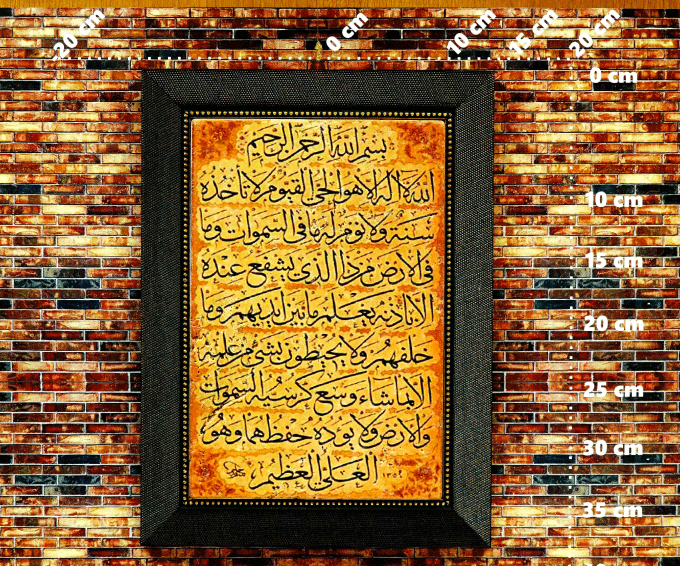 -20 cm 0 cm 10 cm 15 cm 20 cm
0 cm
10 cm
15 cm
20 cm
25 cm
30 cm
35 cm
بسم الله الرحمن الرحيم
الله لا اله الا هو الحي القيوم لا تأخذه
سنة ولا نوم له ما في السموات وما
في الارض من ذا الذي يشفع عنده
الا باذنه يعلم ما بين ايديهم وما
خلفهم ولا يحيطون بشئ من علمه
الا بما شاء وسع كرسيه السموات
والارض ولا يؤده حفظهما وهو
العلي العظيم